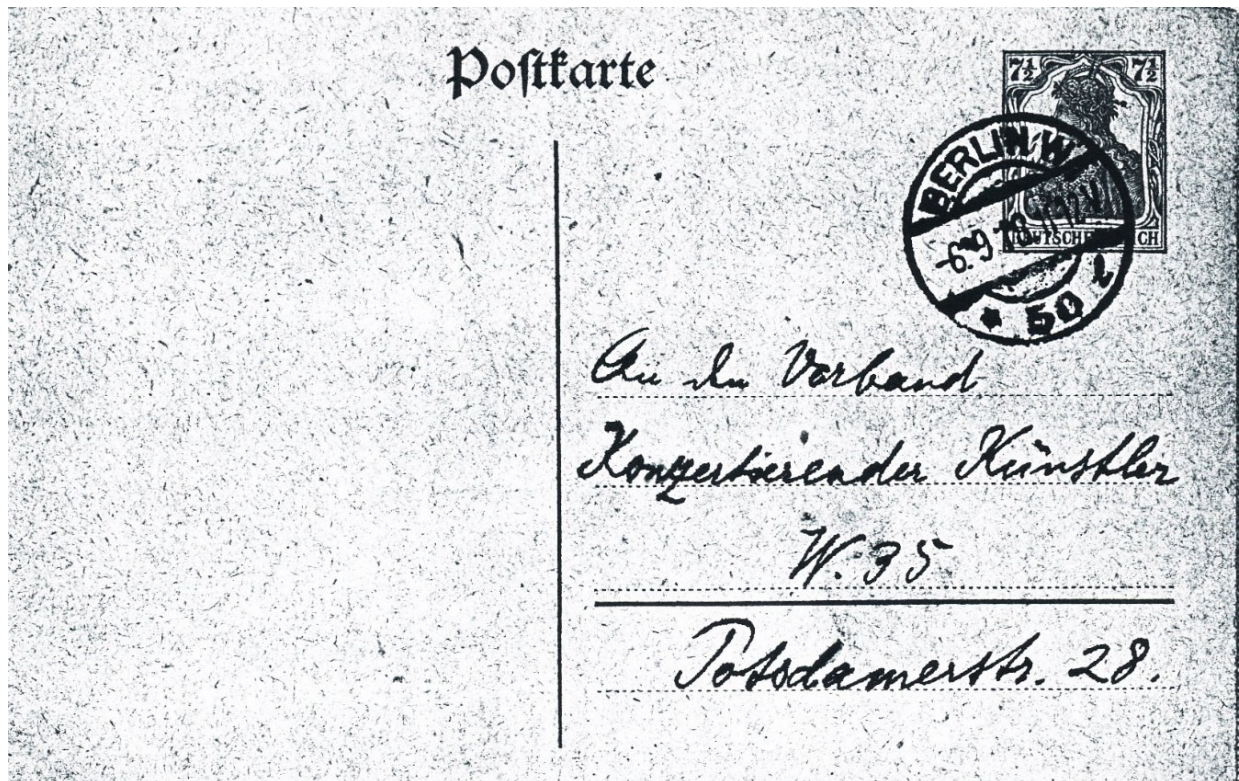 Postkarte
7½ 7½
DEUTSCHES REICH
BERLIN W
-6.9.18.11-12V.
* 50 l
An den Verband
Konzertierender Künstler
W. 35
Potsdamerstr. 28.